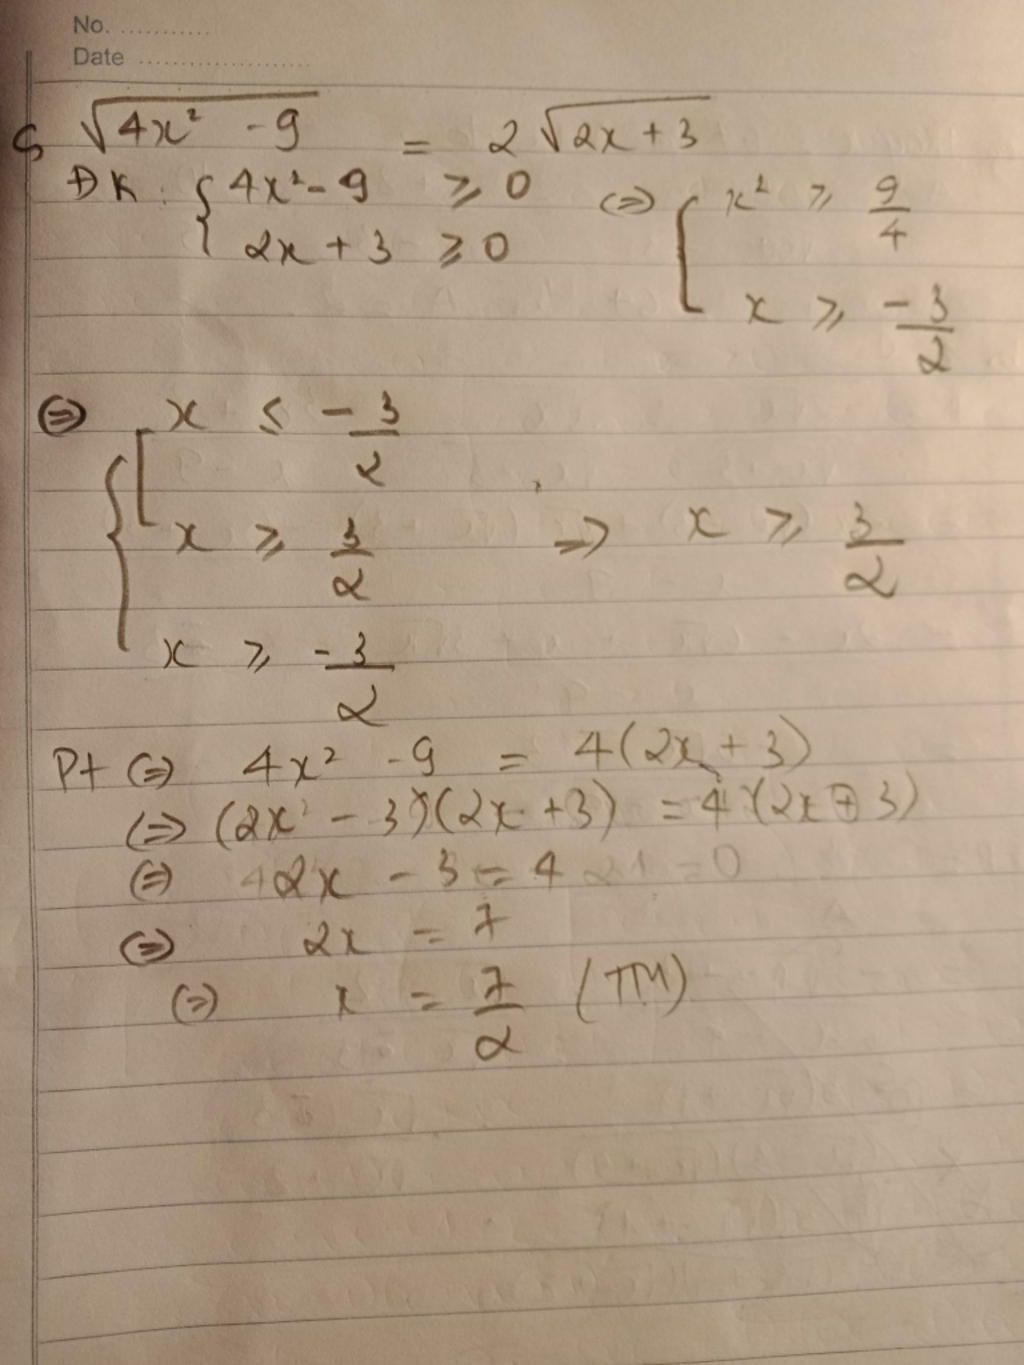 No. ...........
Date .....................
√(4x² - 9) = 2√(2x + 3)
ĐK: { 4x² - 9 ≥ 0 (=) { x² ≥ 9/4
2x + 3 ≥ 0
x ≥ -3/2
(=) { [ x ≤ -3/2
x ≥ 3/2 => x ≥ 3/2
x ≥ -3/2
Pt (=) 4x² - 9 = 4(2x + 3)
(=) (2x - 3)(2x + 3) = 4(2x + 3)
(=) 2x - 3 = 4
(=) 2x = 7
(=) x = 7/2 (TM)